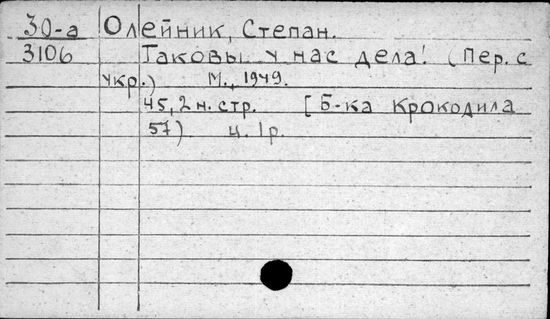 30-а Олейник, Степан.
3106 Таковы у нас дела! (Пер. с
укр.) М., 1949.
45, 2 н. стр. [Б-ка Крокодила
57) ц. 1 р.